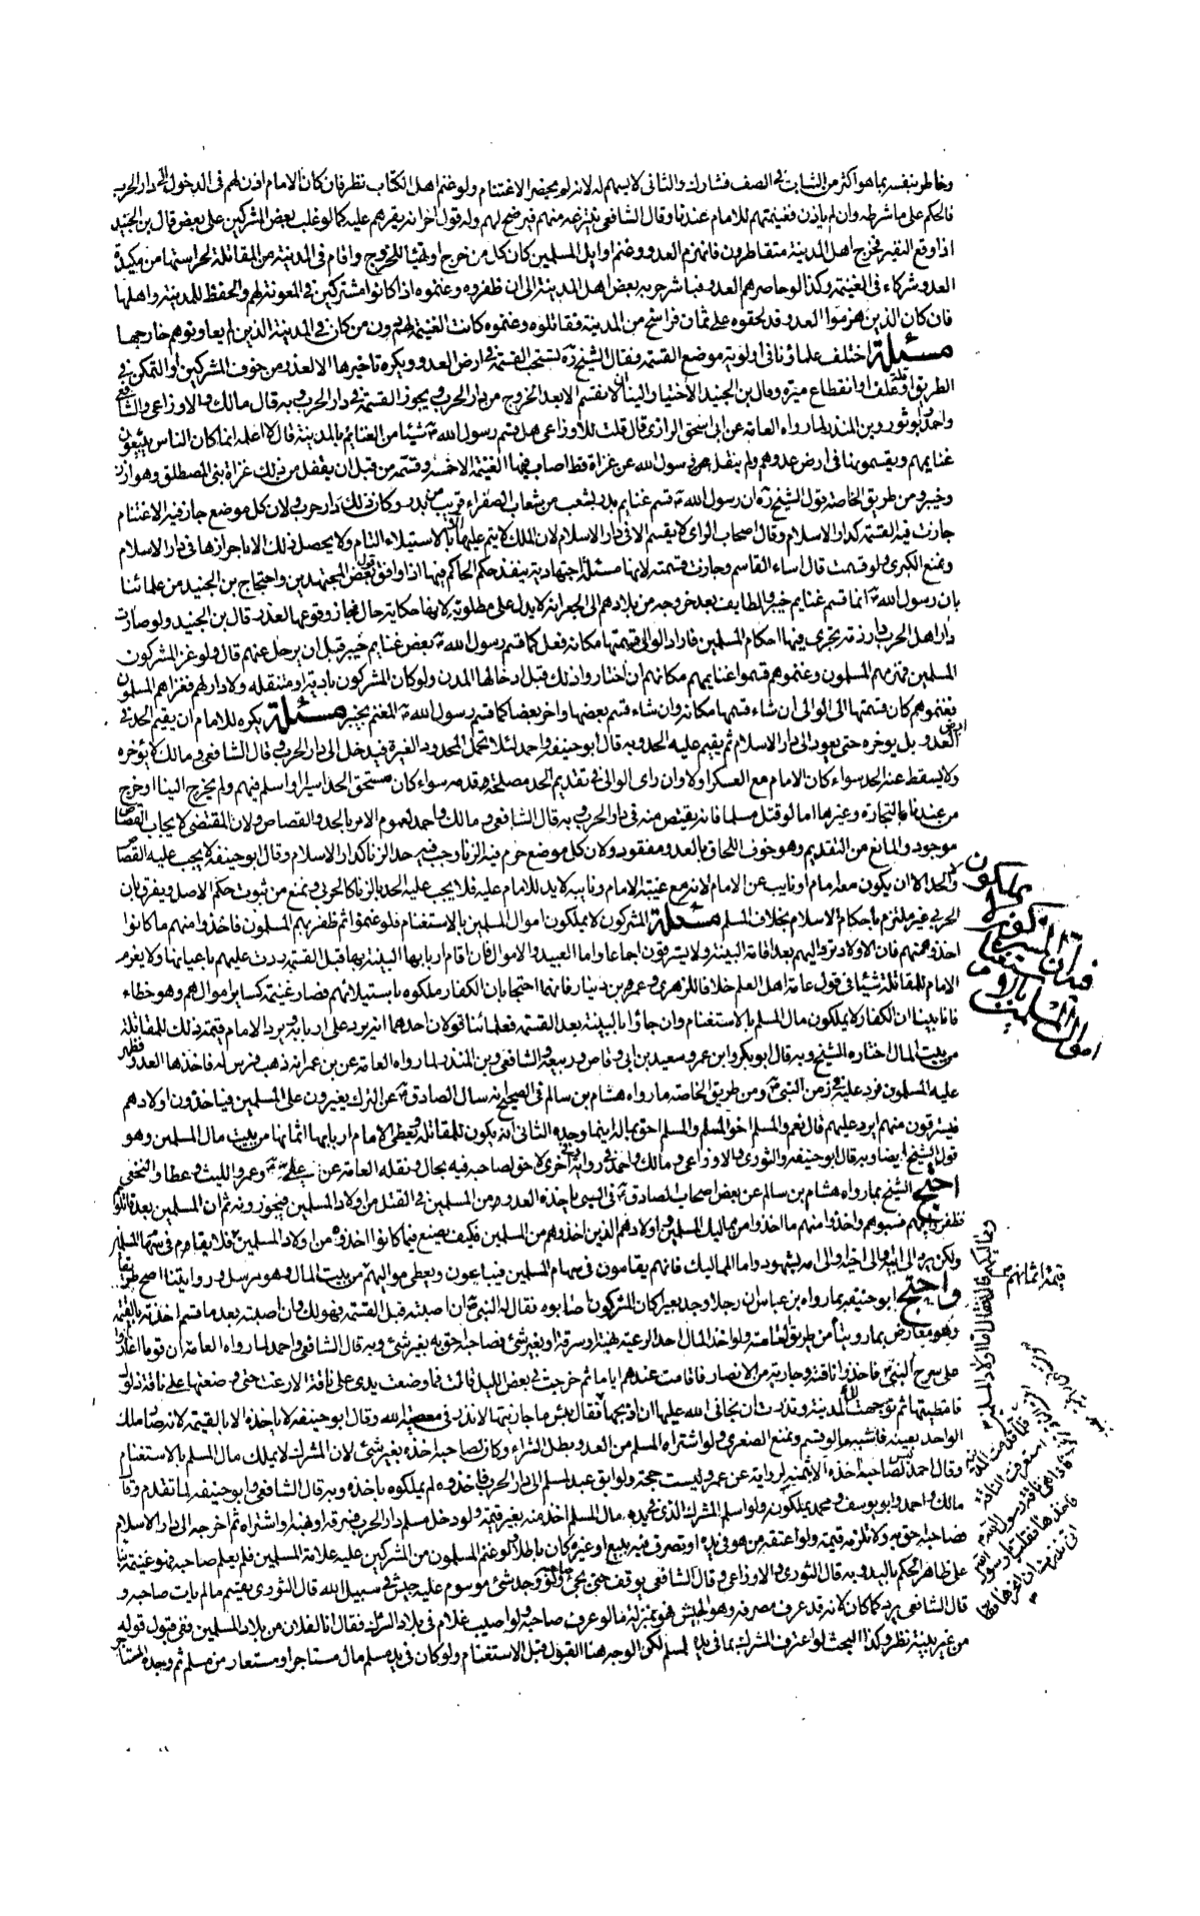 وخاطر بنفسه بما هو اكثر من الثابت في الصف فشارك والثاني لا يسهم له لانه لم يحضر الاغتنام ولو غنم اهل الكتاب نظر فان كان الامام اذن لهم في الدخول الى دار الحرب
فالحكم على ما شرطه وان لم ياذن فغنيمتهم للامام عندنا وقال الشافعي ينتزعه منهم فيرضخ لهم وله قول اخر انه يقرهم عليه كما لو غلب بعض المشركين على بعض قال بن الجنيد
اذا وقع النفير فخرج اهل المدينة متقاطرون فانهزم العدو وغنم اوايل المسلمين كان كل من خرج او تهيا للخروج واقام في المدينة من المقاتلة لحراستها من مكيدة
العدو شركاء في الغنيمة وكذا لو حاصرهم العدو فباشر حربه بعض اهل المدينة الى ان ظفروه وغنموه اذا كانوا مشتركين في المعونة لهم والحفظ للمدينة واهلها
فان كان الذين هزموا العدو قد لحقوه على ثمان فراسخ من المدينة فقاتلوه وغنموه كانت الغنيمة لهم دون من كان في المدينة الذين لم يعاونوهم خارجها
مسئلة اختلف علماؤنا في اولوية موضع القسمة فقال الشيخ ره تستحب القسمة في ارض العدو ويكره تاخيرها الا لعذر من خوف المشركين او التمكن في
الطريق او قلة علف او انقطاع ميرة ومال بن الجنيد الاختيار الينا ان لا يقسم الا بعد الخروج من دار الحرب ويجوز القسمة في دار الحرب وبه قال مالك والاوزاعي والشافعي
واحمد وابو ثور وبن المنذر لما رواه العامة عن ابي اسحق الرازي قال قلت للاوزاعي هل قسم رسول الله ص شيئا من الغنايم بالمدينة قال لا اعلمه انما كان الناس يتبعون
غنايمهم ويقسمونها في ارض عدوهم ولم يقفل رسول الله عن غزاة قط اصاب فيها الغنيمة الا خمسه وقسمه من قبل ان يقفل من ذلك غزاة بني المصطلق وهوازن
وخيبر ومن طريق الخاصة قول الشيخ ره ان رسول الله ص قسم غنايم بدر بشعب من شعاب الصفراء قريب من بدر وكان ذلك دار حرب ولان كل موضع جاز فيه الاغتنام
جازت فيه القسمة كدار الاسلام وقال اصحاب الراي لا يقسم الا في دار الاسلام لان الملك لا يتم عليها الا بالاستيلاء التام ولا يحصل ذلك الا باحرازها في دار الاسلام
ونمنع الكبرى ولو قسمت قال اساء القاسم وجازت قسمته لانها مسئلة اجتهادية ينفذ حكم الحاكم فيها اذا وافق قول بعض المجتهدين واحتجاج بن الجنيد من علمائنا
بان رسول الله ص انما قسم غنايم خيبر والطايف بعد خروجه من بلادهم الى الجعرانة لا يدل على مطلوبه لانها حكاية حال فجاز وقوعها لعذر قال بن الجنيد ولو صارت
دار اهل الحرب دار ذمة تجري فيها احكام المسلمين فاراد الوالي قسمتها مكانه فعل كما قسم رسول الله ص بعض غنايم خيبر قبل ان يرحل عنهم قال ولو غزا المشركون
المسلمين فهزمهم المسلمون وغنموهم قسموا غنايمهم مكانهم ان اختاروا ذلك قبل ادخالها المدن ولو كان المشركون بادية او متنقله ولا دار لهم فغزاهم المسلمون
فغنموهم كان قسمتها الى الوالي ان شاء قسمها مكانه وان شاء قسم بعضها واخر بعضا كما قسم رسول الله ص المغنم بخيبر مسئلة يكره للامام ان يقيم الحد في
ارض العدو بل يوخره حتى يعود الى دار الاسلام ثم يقيم عليه الحد وبه قال ابو حنيفة واحمد لئلا تحمل المحدود الغيرة فيدخل الى دار الحرب وقال الشافعي ومالك لا يؤخره
ولا يسقط عنه الحد سواء كان الامام مع العسكر اولا وان راى الوالي في تقديم الحد مصلحة قدمه سواء كان مستحق الحد اسيرا او اسلم فيهم ولم يخرج الينا او خرج
من عندنا للتجارة وغيرها اما لو قتل مسلما فانه يقتص منه في دار الحرب وبه قال الشافعي ومالك واحمد لعموم الامر بالحد والقصاص ولان المقتضى لايجاب القصاص
موجود والمانع من التقديم وهو خوف اللحاق بالعدو مفقود ولان كل موضع حرم فيه الزنا وجب فيه حد الزنا كدار الاسلام وقال ابو حنيفة لا يجب عليه القصاص
والحد الا ان يكون معه امام او نايب عن الامام لانه مع غيبة الامام ونايبه لا يد للامام عليه فلا يجب عليه الحد بالزنا كالحربي ونمنع من ثبوت حكم الاصل ويفرق بان
الحربي غير ملتزم باحكام الاسلام بخلاف المسلم مسئلة المشركون لا يملكون اموال المسلمين بالاستغنام فلو غنموا ثم ظفر بهم المسلمون فاخذوا منهم ما كانوا
اخذوه منهم فان الاولاد ترد اليهم بعد اقامة البينة ولا يسترقون اجماعا واما العبيد والاموال فان اقام اربابها البينة بها قبل القسمة ردت عليهم باعيانها ولا يغرم
الامام للمقاتلة شيئا في قول عامة اهل العلم خلافا للزهري وعمرو بن دينار فانهما احتجا بان الكفار ملكوه باستيلائهم فصار غنيمة كساير اموالهم وهو خطاء
فانا بينا ان الكفار لا يملكون مال المسلم بالاستغنام وان جاؤا بالبينة بعد القسمة فعلمائنا قولان احدهما انه يرد على اربابه ويرد الامام قيمة ذلك للمقاتلة
من بيت المال اختاره الشيخ وبه قال ابو بكر وابن عمر وسعيد بن ابي وقاص وربيعة والشافعي وبن المنذر لما رواه العامة عن بن عمر انه ذهب فرس له فاخذها العدو فظهر
عليه المسلمون فرد عليه في زمن النبي ص ومن طريق الخاصة ما رواه هشام بن سالم في الصحيح انه سال الصادق ع عن الترك يغيرون على المسلمين فياخذون اولادهم
فيسترقون منهم ايرد عليهم قال نعم والمسلم اخو المسلم والمسلم احق بماله اينما وجده الثاني انه يكون للمقاتلة ويعطى الامام اربابها اثمانها من بيت مال المسلمين وهو
قول الشيخ ايضا وبه قال ابو حنيفة والثوري والاوزاعي ومالك واحمد في رواية وفي اخرى لا حق لصاحبه فيه بحال ونقله العامة عن علي ع وعمر والليث وعطا والنخعي
احتج الشيخ بما رواه هشام بن سالم عن بعض اصحاب الصادق ع في السبي ياخذه العدو من المسلمين في القتل من اولاد المسلمين فيحوزونه ثم ان المسلمين بعد قاتلوهم
ظفروا بهم فسبوهم واخذوا منهم ما اخذوا من مماليك المسلمين واولادهم الذين اخذوهم من المسلمين فكيف يصنع فيما كانوا اخذوه من اولاد المسلمين فلا يقام في سهام المسلمين
ولكن يرد الى ابيه والى اخيه والى امه بشهود واما المماليك فانهم يقامون في سهام المسلمين فيباعون ويعطي مواليهم من بيت المال وهو مرسل وروايتنا اصح طريقا
واحتج ابو حنيفة بما رواه بن عباس ان رجلا وجد بعيرا كان المشركون اصابوه فقال له النبي ص ان اصبته قبل القسمة فهو لك وان اصبته بعد ما قسم اخذته بالقيمة
وهو معارض بما رويناه من طريق العامة ولو اخذ المال احد الرعية بهبة او سرقة او بغير شئ فصاحبه احق به بغير شئ وبه قال الشافعي واحمد لما رواه العامة ان قوما اغاروا
على سرح النبي ص فاخذوا ناقته وجارية من الانصار فاقامت عندهم اياما ثم خرجت في بعض الليل قالت فما وضعت يدي على ناقة الا رغت حتى وضعتها على ناقة ذلول
فامتطيتها ثم توجهت الى المدينة ونذرت ان نجاني الله عليها ان اذبحها فقال بئس ما جازيتها لا نذر في معصية الله وقال ابو حنيفة لا ياخذه الا بالقيمة لانه صار ملك
الواحد بعينه فاشبه ما لو قسم ونمنع الصغرى ولو اشتراه المسلم من العدو بطل الشراء وكان لصاحبه اخذه بغير شئ لان المشرك لا يملك مال المسلم بالاستغنام
وقال احمد ليس لصاحبه اخذه الا بثمنه لرواية عن عمر وليست حجة ولو ابق عبد لمسلم الى دار الحرب فاخذوه لم يملكوه باخذه وبه قال الشافعي وابو حنيفة لما تقدم وقال
مالك واحمد وابو يوسف ومحمد يملكونه ولو اسلم المشرك الذي في يده مال المسلم اخذ منه بغير قيمة ولو دخل مسلم دار الحرب فسرقه او وهبه او اشتراه ثم اخرجه الى دار الاسلام
فصاحبه احق به ولا تلزمه قيمة ولو اعتقه من هو في يده او تصرف فيه ببيع او غيره كان باطلا ولو غنم المسلمون من المشركين عليه علامة المسلمين فلم يعلم صاحبه فهو غنيمة بناء
على ظاهر الحكم باليد وبه قال الثوري والاوزاعي وقال الشافعي يوقف حتى يجئ صاحبه ولو وجد شئ موسوم عليه حبس في سبيل الله قال الثوري يقسم ما لم يات صاحبه و
قال الشافعي يرد كما كان لانه قد عرف مصرفه وهو الحبس فهو بمنزلة ما لو عرف صاحبه ولو اصيب غلام في بلاد الشرك فقال انا لفلان من بلاد المسلمين ففي قبول قوله
من غير بينة نظر وكذا البحث لو اعترف المشرك بما في يده لمسلم لكن الوجه هنا القبول قبل الاستغنام ولو كان في يد مسلم مال مستاجر او مستعار من مسلم ثم وجده المستاجر
قيمة اثمانهم